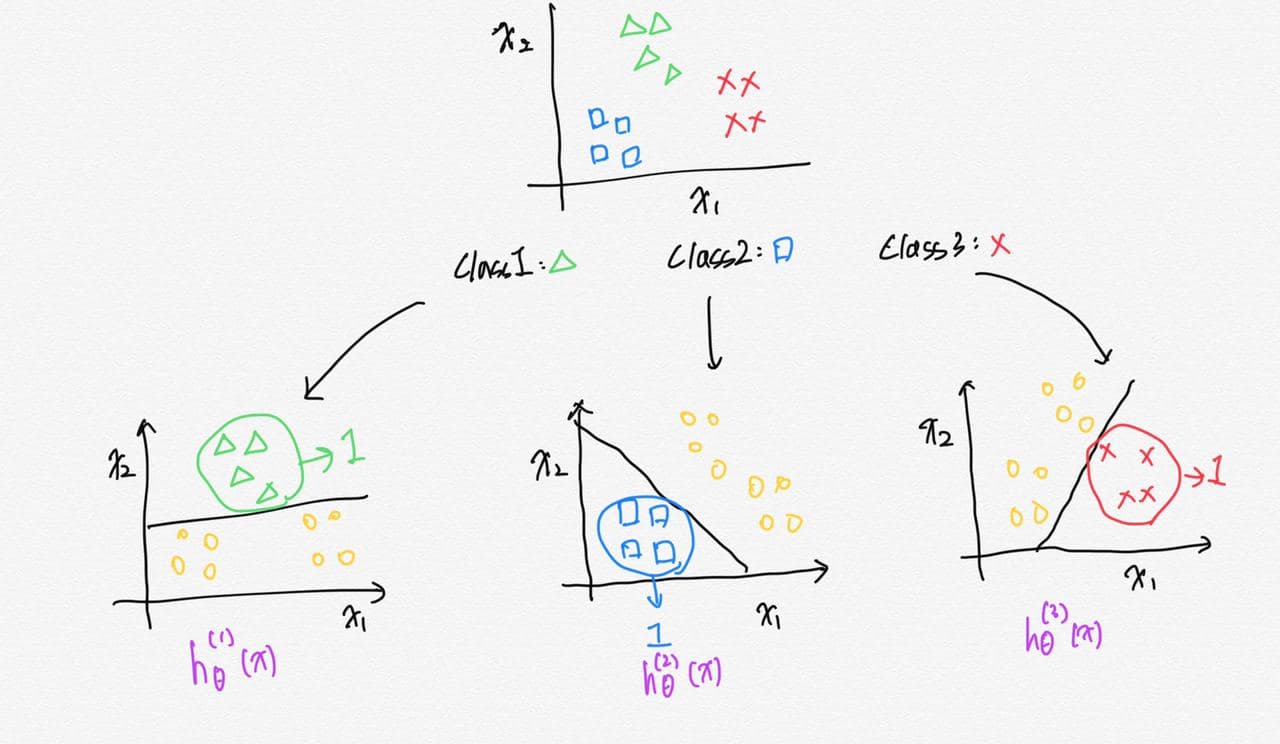 x₂
x₁
Class1: △
Class2: □
Class3: ×
x₂
→ 1
x₁
h_θ^(1)(x)
x₂
x₁
1
h_θ^(2)(x)
x₂
→ 1
x₁
h_θ^(3)(x)